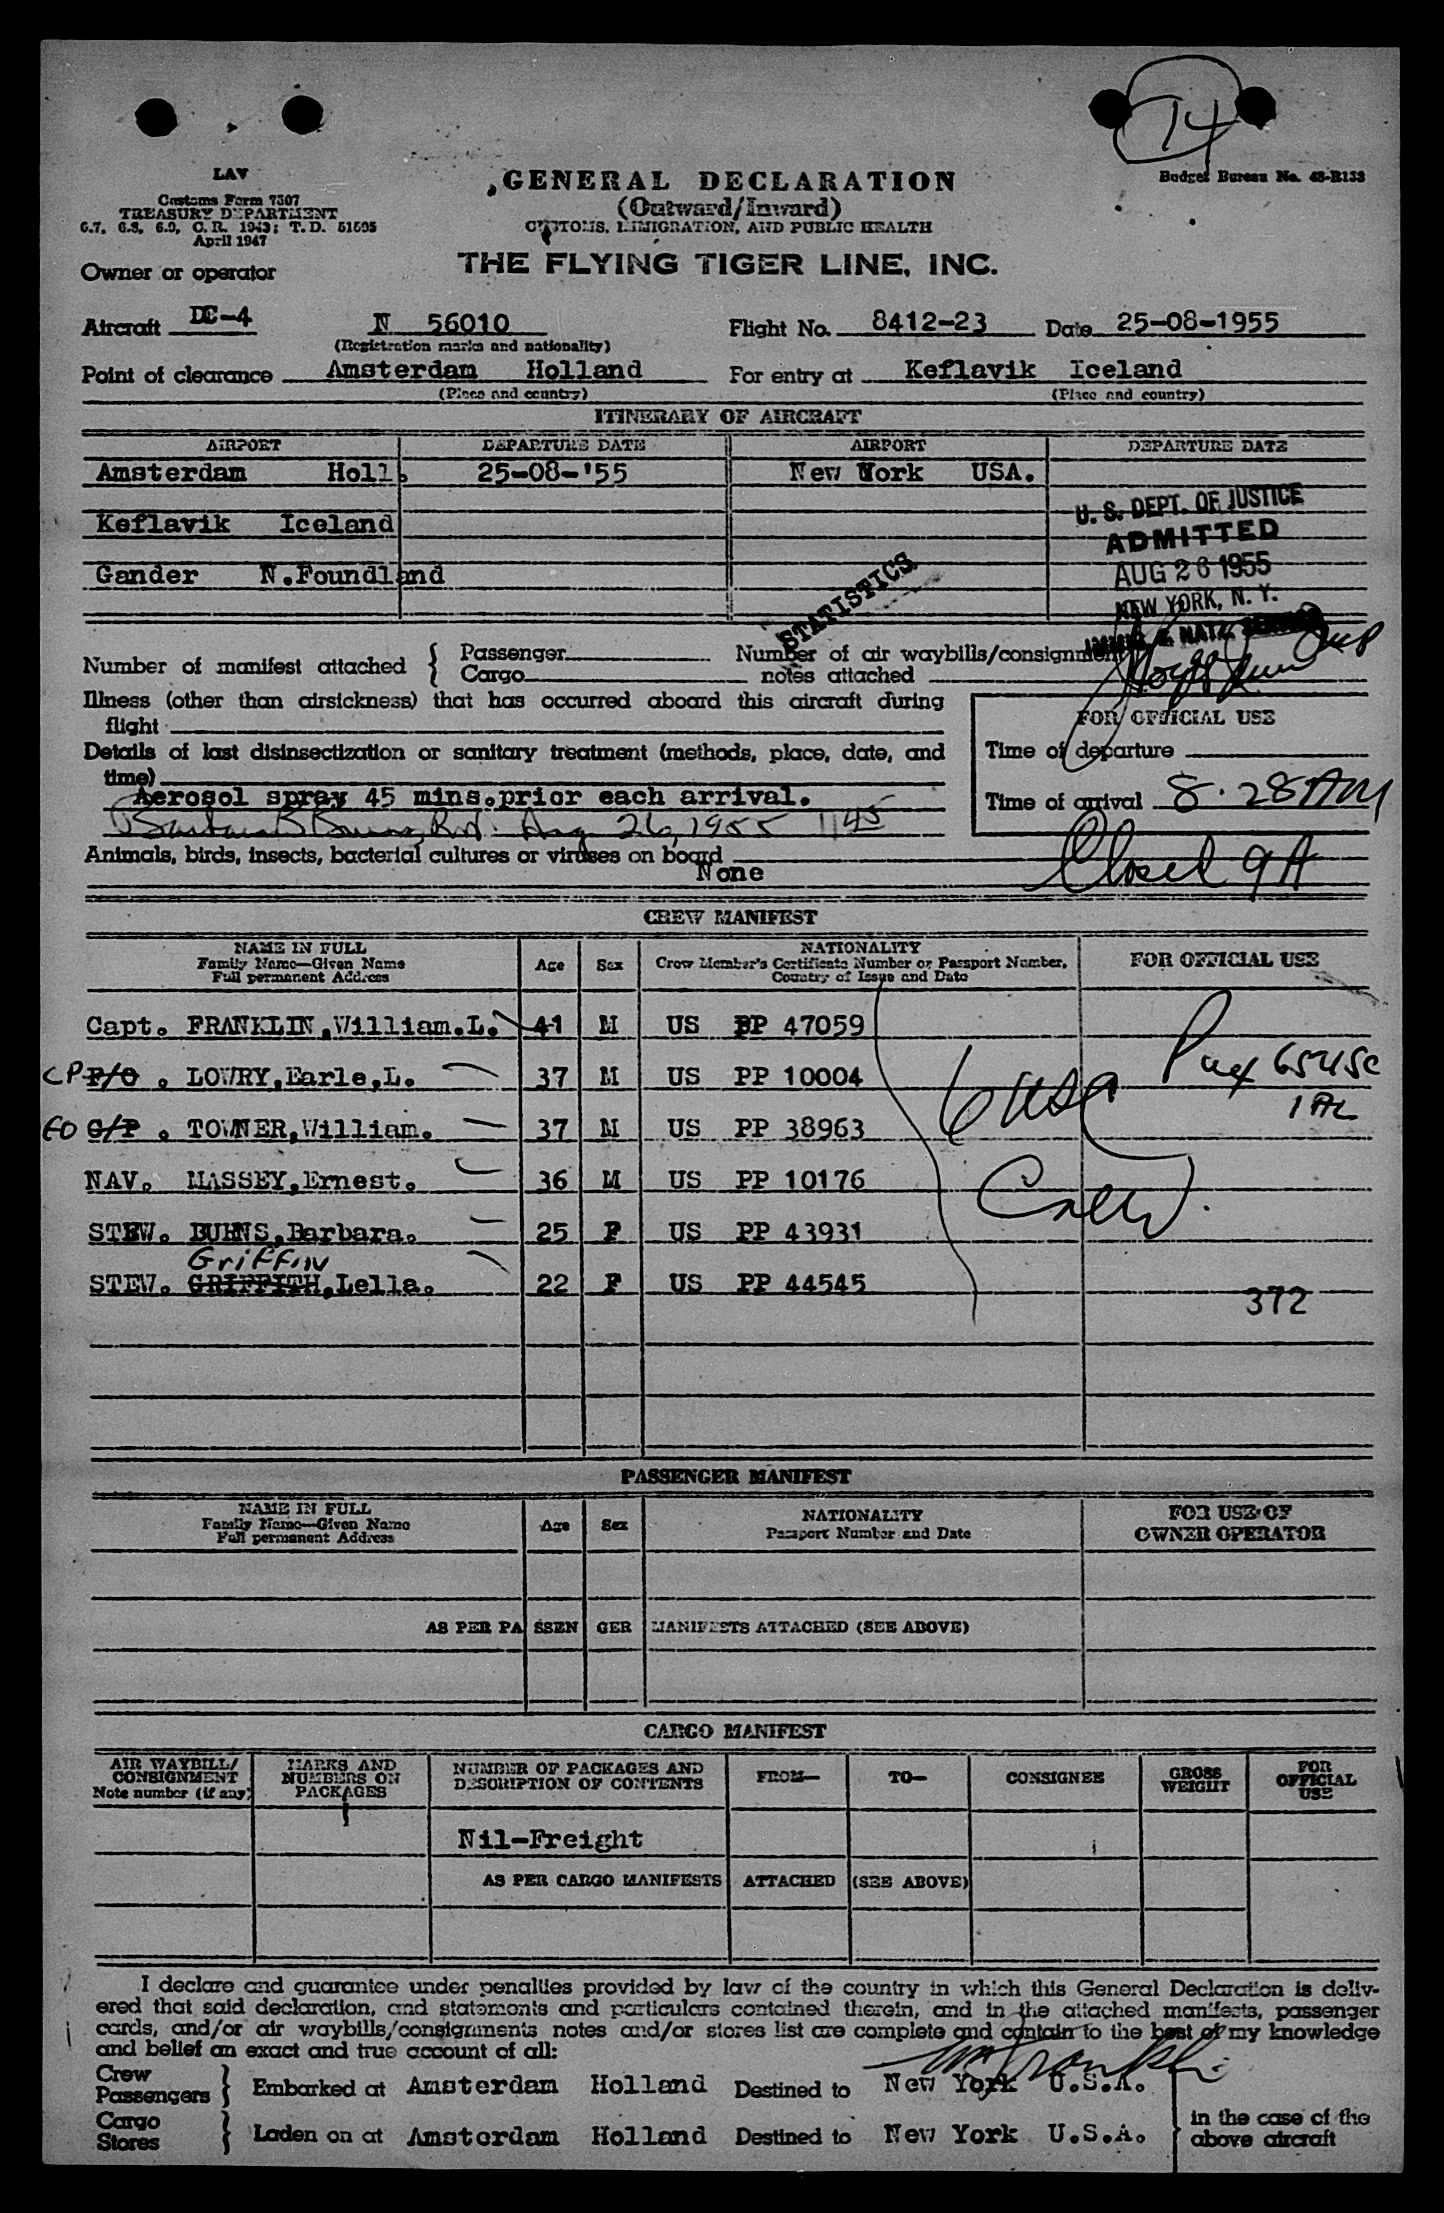 74
LAV
Customs Form 7507
TREASURY DEPARTMENT
6.7, 6.8, 6.9, C.R. 1943; T.D. 51595
April 1947
Budget Bureau No. 48-R133
GENERAL DECLARATION
(Outward/Inward)
CUSTOMS, IMMIGRATION, AND PUBLIC HEALTH
Owner or operator THE FLYING TIGER LINE, INC.
Aircraft DC-4 N 56010 Flight No. 8412-23 Date 25-08-1955
(Registration marks and nationality)
Point of clearance Amsterdam Holland For entry at Keflavik Iceland
(Place and country) (Place and country)
ITINERARY OF AIRCRAFT
AIRPORT DEPARTURE DATE AIRPORT DEPARTURE DATE
Amsterdam Holl. 25-08-'55 New York USA.
Keflavik Iceland
Gander N.Foundland
U. S. DEPT. OF JUSTICE
ADMITTED
AUG 26 1955
NEW YORK, N. Y.
STATISTICS
Number of manifest attached { Passenger Number of air waybills/consignment
Cargo notes attached
Illness (other than airsickness) that has occurred aboard this aircraft during
flight
FOR OFFICIAL USE
Details of last disinsectization or sanitary treatment (methods, place, date, and
time)
Time of departure
Aerosol spray 45 mins.prior each arrival.
Time of arrival 8.28 AM
Barbara B Burns, Aug 26, 1955 1145
Animals, birds, insects, bacterial cultures or viruses on board
None
Closed 9 A
CREW MANIFEST
NAME IN FULL
Family Name—Given Name
Full permanent Address
Age Sex
NATIONALITY
Crew Member's Certificate Number or Passport Number,
Country of Issue and Date
FOR OFFICIAL USE
Capt. FRANKLIN,William.L. 41 M US PP 47059
CP F/O . LOWRY,Earle,L. 37 M US PP 10004
FO C/P . TOWNER,William. 37 M US PP 38963
NAV. MASSEY,Ernest. 36 M US PP 10176
STEW. BURNS,Barbara. 25 F US PP 43931
Griffin
STEW. GRIFFITH,Lella. 22 F US PP 44545
6 USC
Crew.
Pax 65 USC
1 AL
372
PASSENGER MANIFEST
NAME IN FULL
Family Name—Given Name
Full permanent Address
Age Sex
NATIONALITY
Passport Number and Date
FOR USE OF
OWNER OPERATOR
AS PER PASSENGER MANIFESTS ATTACHED (SEE ABOVE)
CARGO MANIFEST
AIR WAYBILL/
CONSIGNMENT
Note number (if any)
MARKS AND
NUMBERS ON
PACKAGES
NUMBER OF PACKAGES AND
DESCRIPTION OF CONTENTS
FROM— TO— CONSIGNEE
GROSS
WEIGHT
FOR
OFFICIAL
USE
Nil-Freight
AS PER CARGO MANIFESTS ATTACHED (SEE ABOVE)
I declare and guarantee under penalties provided by law of the country in which this General Declaration is deliv-
ered that said declaration, and statements and particulars contained therein, and in the attached manifests, passenger
cards, and/or air waybills/consignments notes and/or stores list are complete and contain to the best of my knowledge
and belief an exact and true account of all:
Crew
Passengers } Embarked at Amsterdam Holland Destined to New York U.S.A.
Cargo
Stores } Laden on at Amsterdam Holland Destined to New York U.S.A.
in the case of the
above aircraft